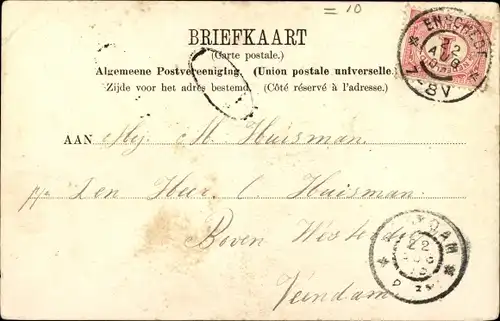 = 10
BRIEFKAART
(Carte postale.)
Algemeene Postvereeniging. (Union postale universelle.
Zijde voor het adres bestemd. (Côté réservé à l'adresse.)
ENSCHEDE
22
AUG
7-8V
AAN Mej. M. Huisman.
p/a Den Heer C. Huisman
Boven Westerdiep
Veendam.
DAM
22